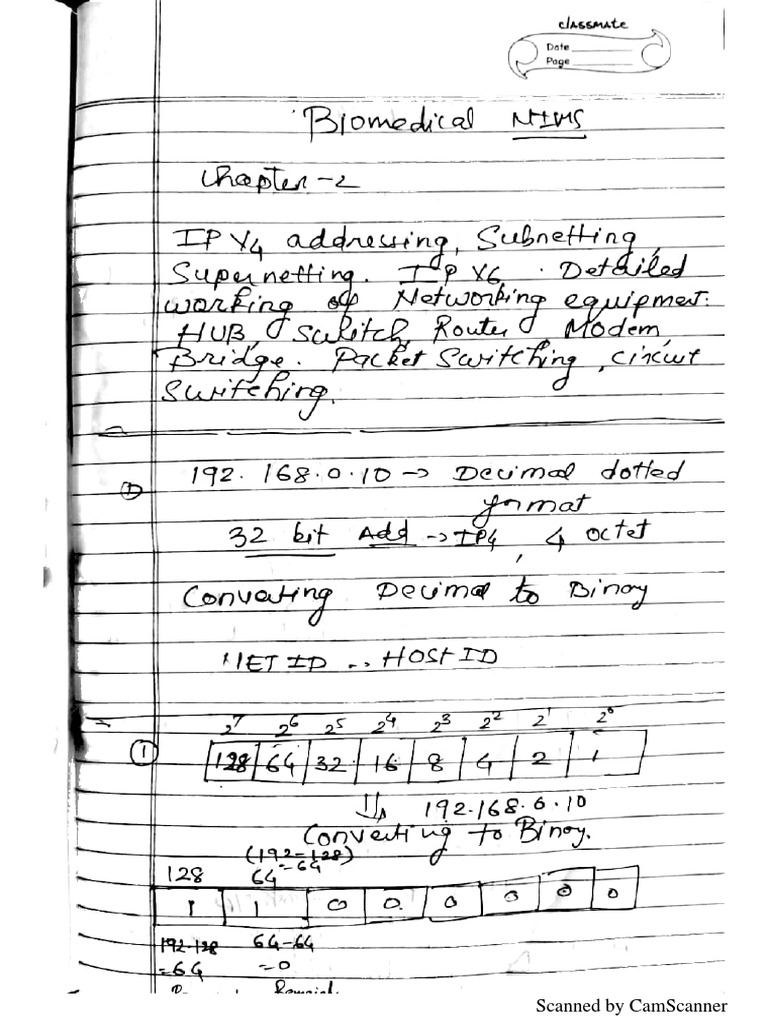 classmate
Date
Page
Biomedical NIMS
Chapter-2
IPV4 addressing, Subnetting,
Supernetting. IPV6. Detailed
working of Networking equipment.
HUB, Switch, Router, Modem,
Bridge. Packet Switching, circuit
Switching.
192.168.0.10 → Decimal dotted
format
32 bit Add → IP4, 4 octet
Converting Decimal to Binary
NET ID .. HOST ID
2⁷ 2⁶ 2⁵ 2⁴ 2³ 2² 2¹ 2⁰
① 128 64 32 16 8 4 2 1
⇓ 192.168.0.10
Converting to Binary.
(192-128)
128 64 =64
1 1 0 0 0 0 0 0
192-128 64-64
=64 =0
Scanned by CamScanner